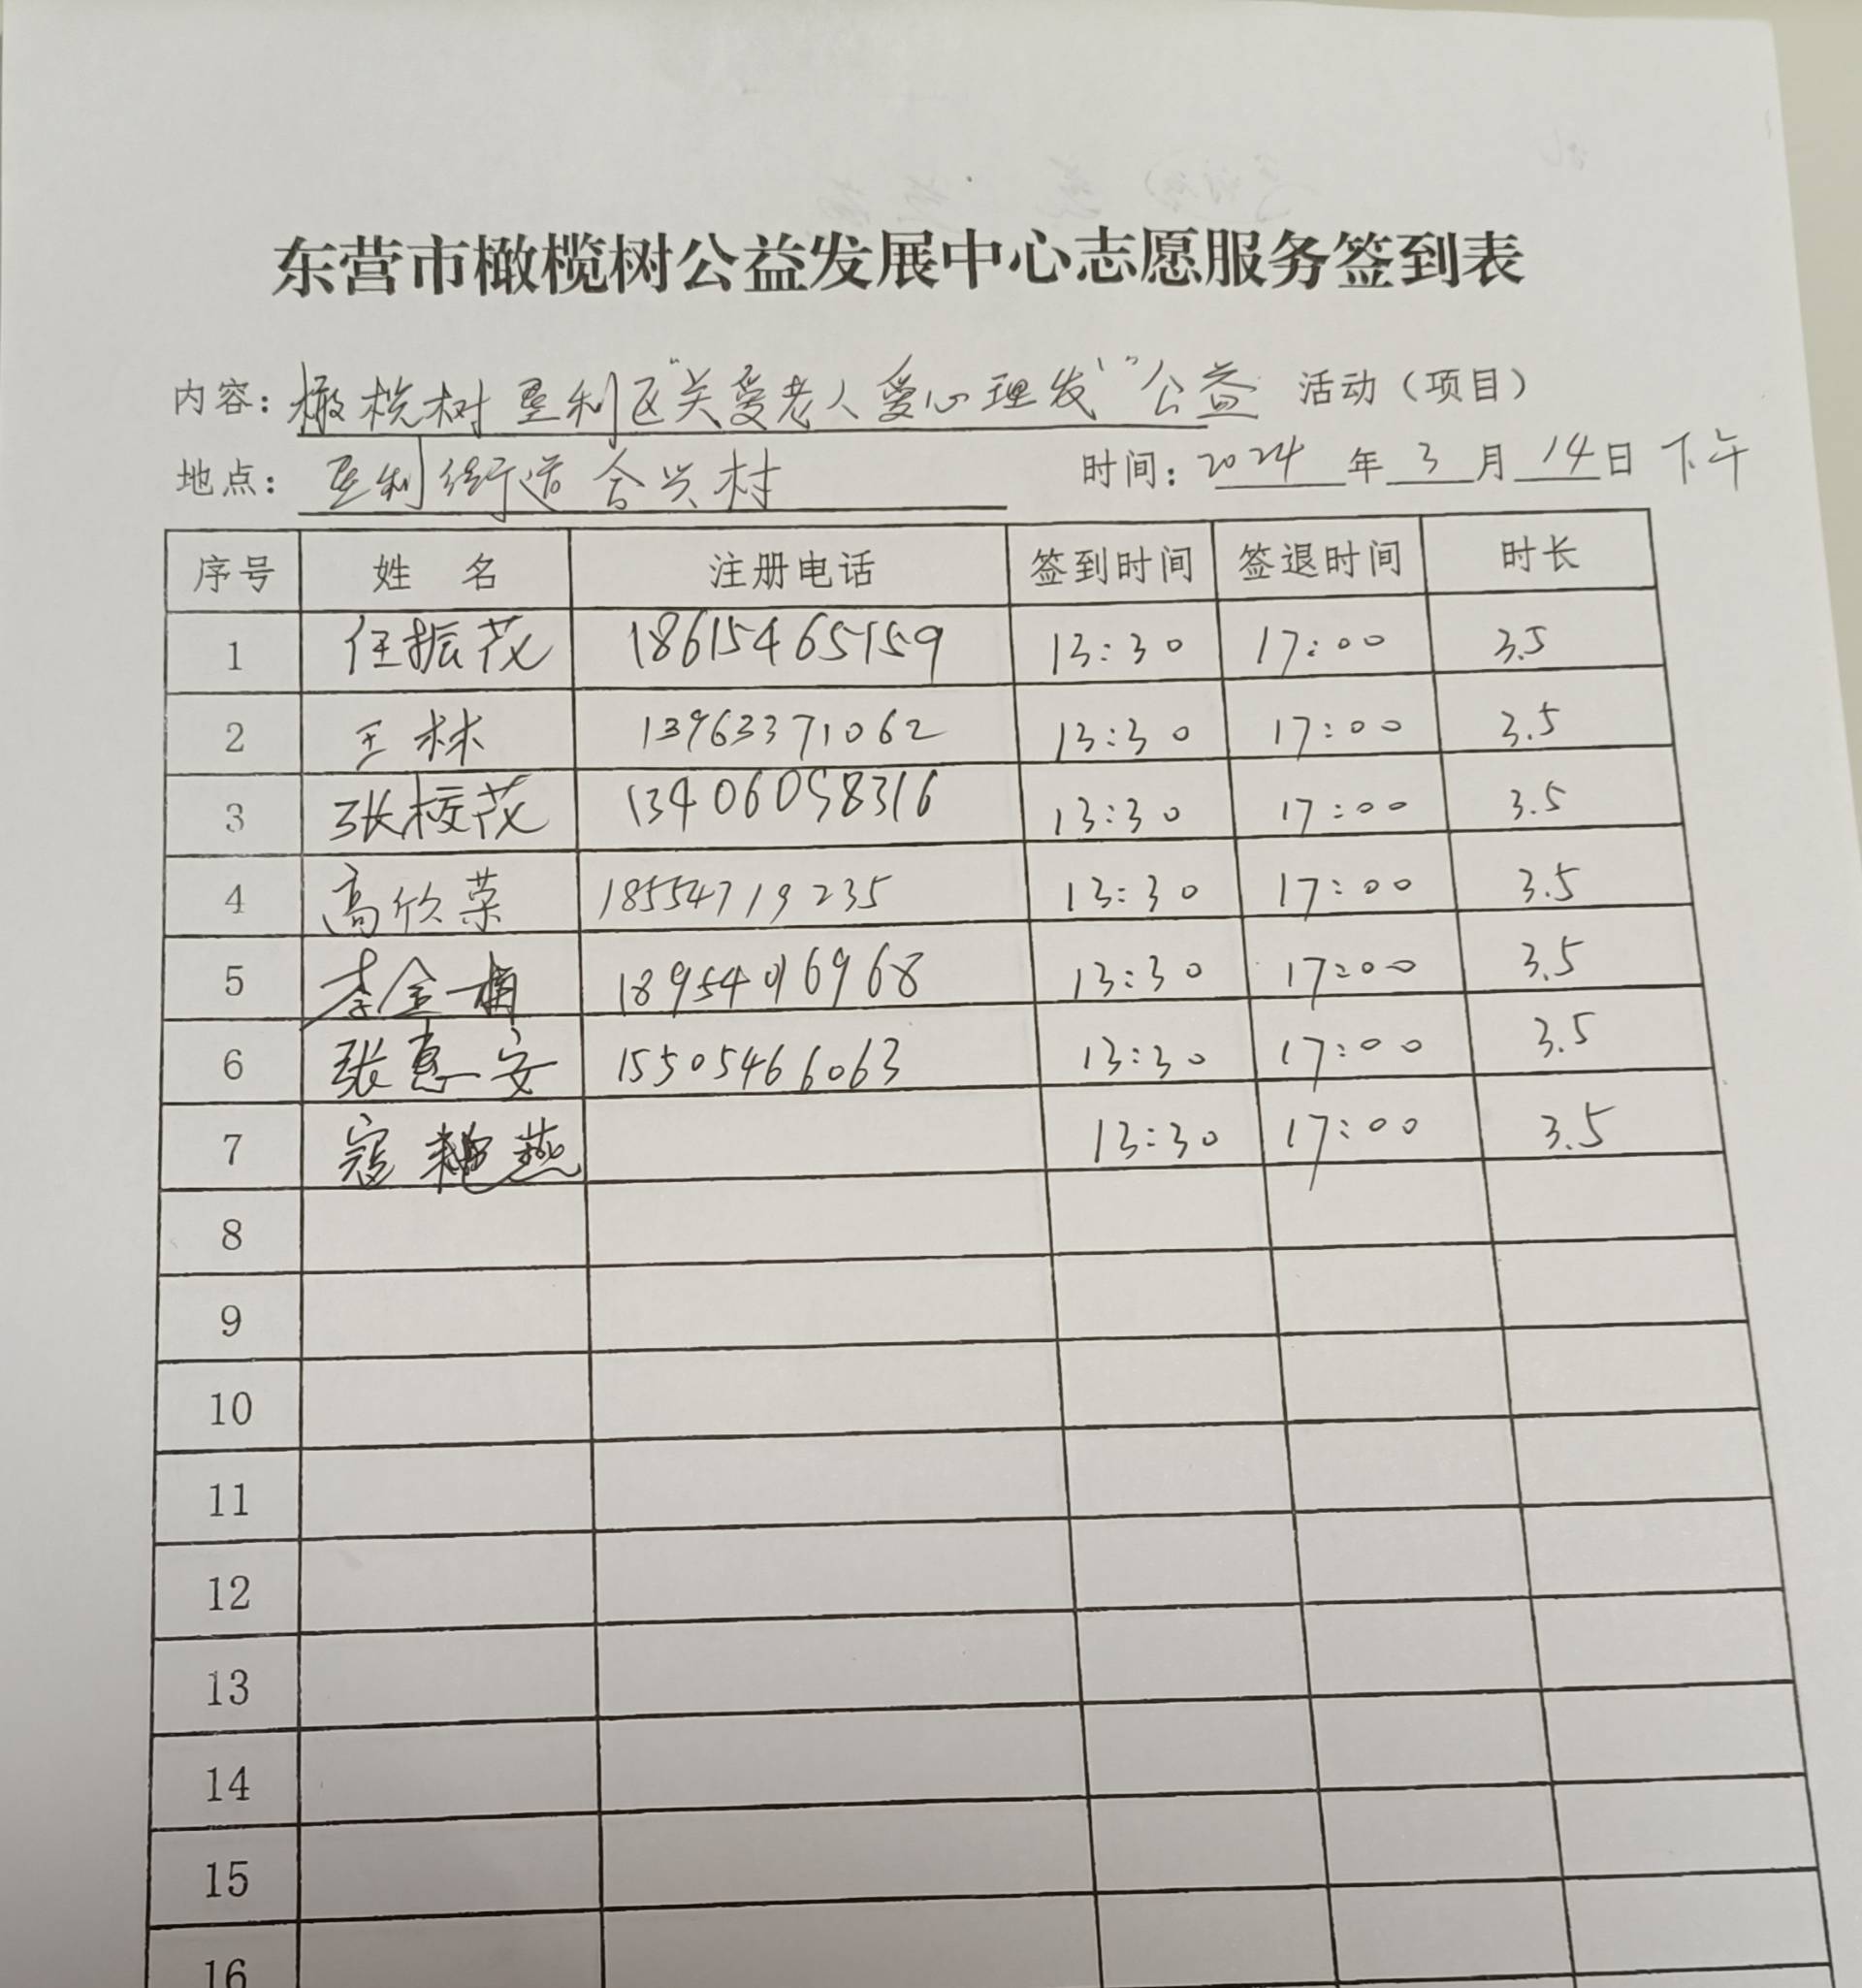 东营市橄榄树公益发展中心志愿服务签到表
内容：橄榄树垦利区"关爱老人爱心理发"公益 活动（项目）
地点：垦利街道合兴村 时间：2024 年 3 月 14 日 下午
序号 姓 名 注册电话 签到时间 签退时间 时长
1 任振茂 18615465159 13:30 17:00 3.5
2 王林 13963371062 13:30 17:00 3.5
3 张校茂 13406058316 13:30 17:00 3.5
4 高欣荣 18554719235 13:30 17:00 3.5
5 李金 13:30 17:00 3.5
6 张惠安 15505466063 13:30 17:00 3.5
7 寇 燕 13:30 17:00 3.5
8
9
10
11
12
13
14
15
16